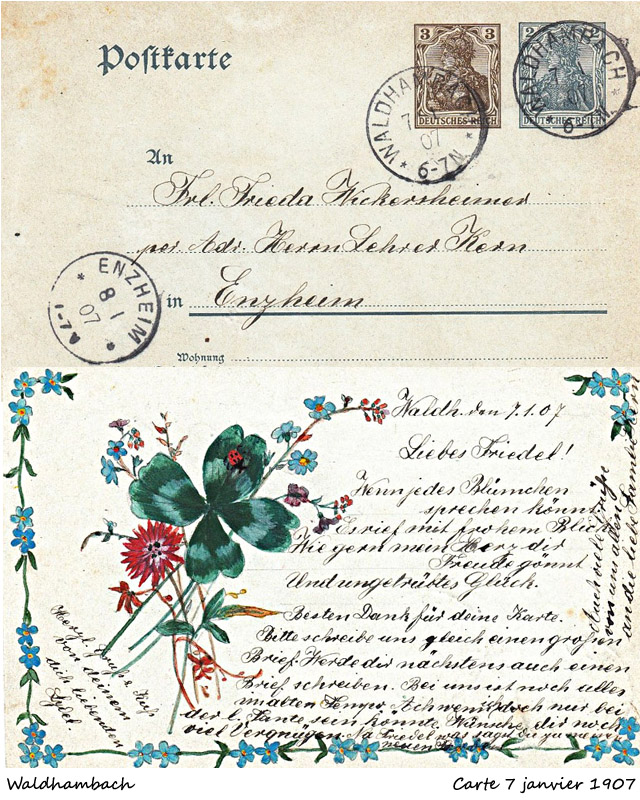 Postkarte
3
2
DEUTSCHES REICH
DEUTSCHES REICH
WALDHAMBACH
7
07
* 6-7N. *
WALDHAMBACH
7
07
6-7N.
An
Frl. Frieda Wickersheimer
per Adr. Herrn Lehrer Kern
in Enzheim
* ENZHEIM *
8 1
07
Wohnung
Waldh. den 7.1.07
Liebes Friedel!
Wenn jedes Blümchen
sprechen könnt
Es rief mit frohem Blick
Wie gern mein Herz dir
Freude gönnt
Und ungetrübtes Glück.
Besten Dank für deine Karte.
Bitte schreibe uns gleich einen großen
Brief. Werde dir nächstens auch einen
Brief schreiben. Bei uns ist noch alles
im alten Tempo. Ach wenn ich doch nur bei
der l. Tante sein könnte. Wünsche dir noch
viel Vergnügen. Na Friedel was sagst du zu
Auch viele Grüße
von uns allen
an die liebe Familie
Herzl. Gruß & Kuß
von deinem
dich liebenden
Waldhambach
Carte 7 janvier 1907